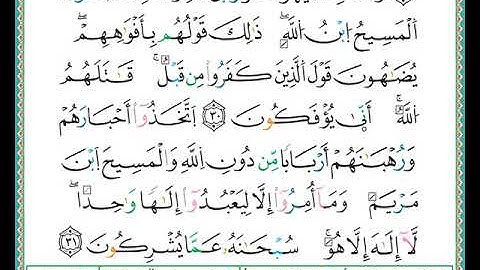 ٱلْمَسِيحُ ٱبْنُ ٱللَّهِ ۖ ذَٰلِكَ قَوْلُهُم بِأَفْوَٰهِهِمْ ۖ
يُضَـٰهِـُٔونَ قَوْلَ ٱلَّذِينَ كَفَرُوا۟ مِن قَبْلُ ۚ قَـٰتَلَهُمُ
ٱللَّهُ ۚ أَنَّىٰ يُؤْفَكُونَ ﴿٣٠﴾ ٱتَّخَذُوٓا۟ أَحْبَارَهُمْ
وَرُهْبَـٰنَهُمْ أَرْبَابًا مِّن دُونِ ٱللَّهِ وَٱلْمَسِيحَ ٱبْنَ
مَرْيَمَ ۖ وَمَآ أُمِرُوٓا۟ إِلَّا لِيَعْبُدُوٓا۟ إِلَـٰهًا وَٰحِدًا ۖ
لَّآ إِلَـٰهَ إِلَّا هُوَ ۚ سُبْحَـٰنَهُۥ عَمَّا يُشْرِكُونَ ﴿٣١﴾